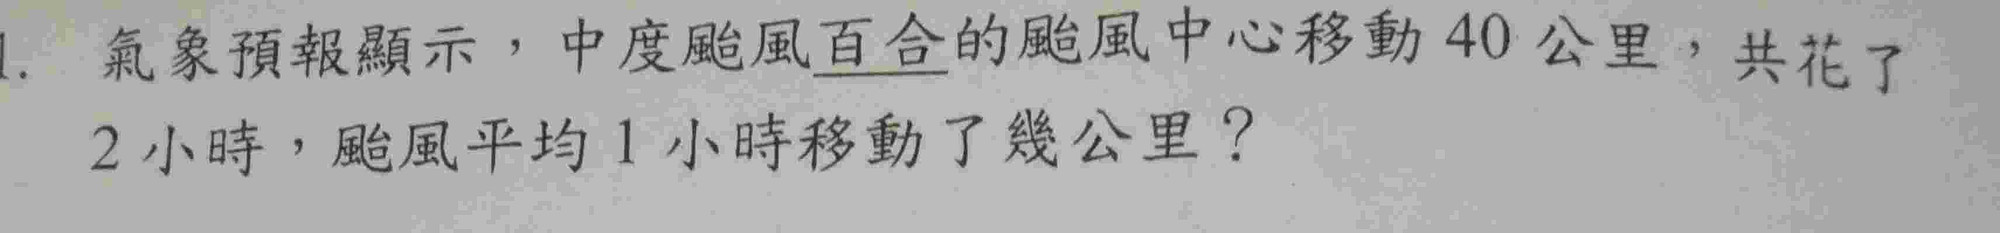 1. 氣象預報顯示，中度颱風百合的颱風中心移動 40 公里，共花了
2 小時，颱風平均 1 小時移動了幾公里？